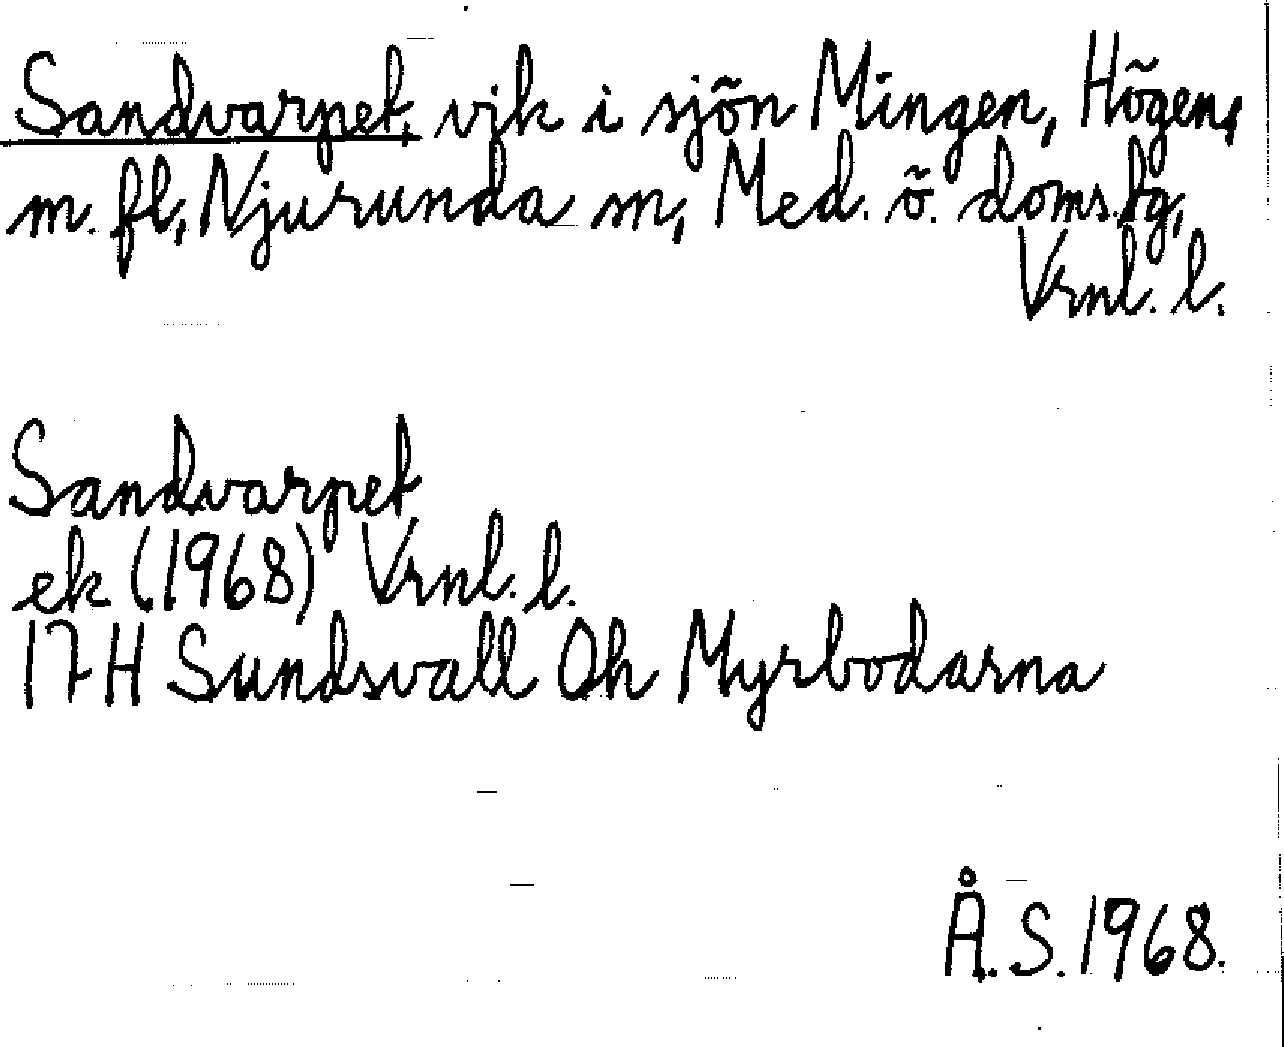 Sandvarpet, vik i sjön Mingen, Högen,
m. fl, Njurunda sn, Med. ö. doms.fg,
Vrnl. l.
Sandvarpet
ek (1968) Vrnl. l.
17H Sundsvall Oh Myrbodarna
Å. S. 1968.